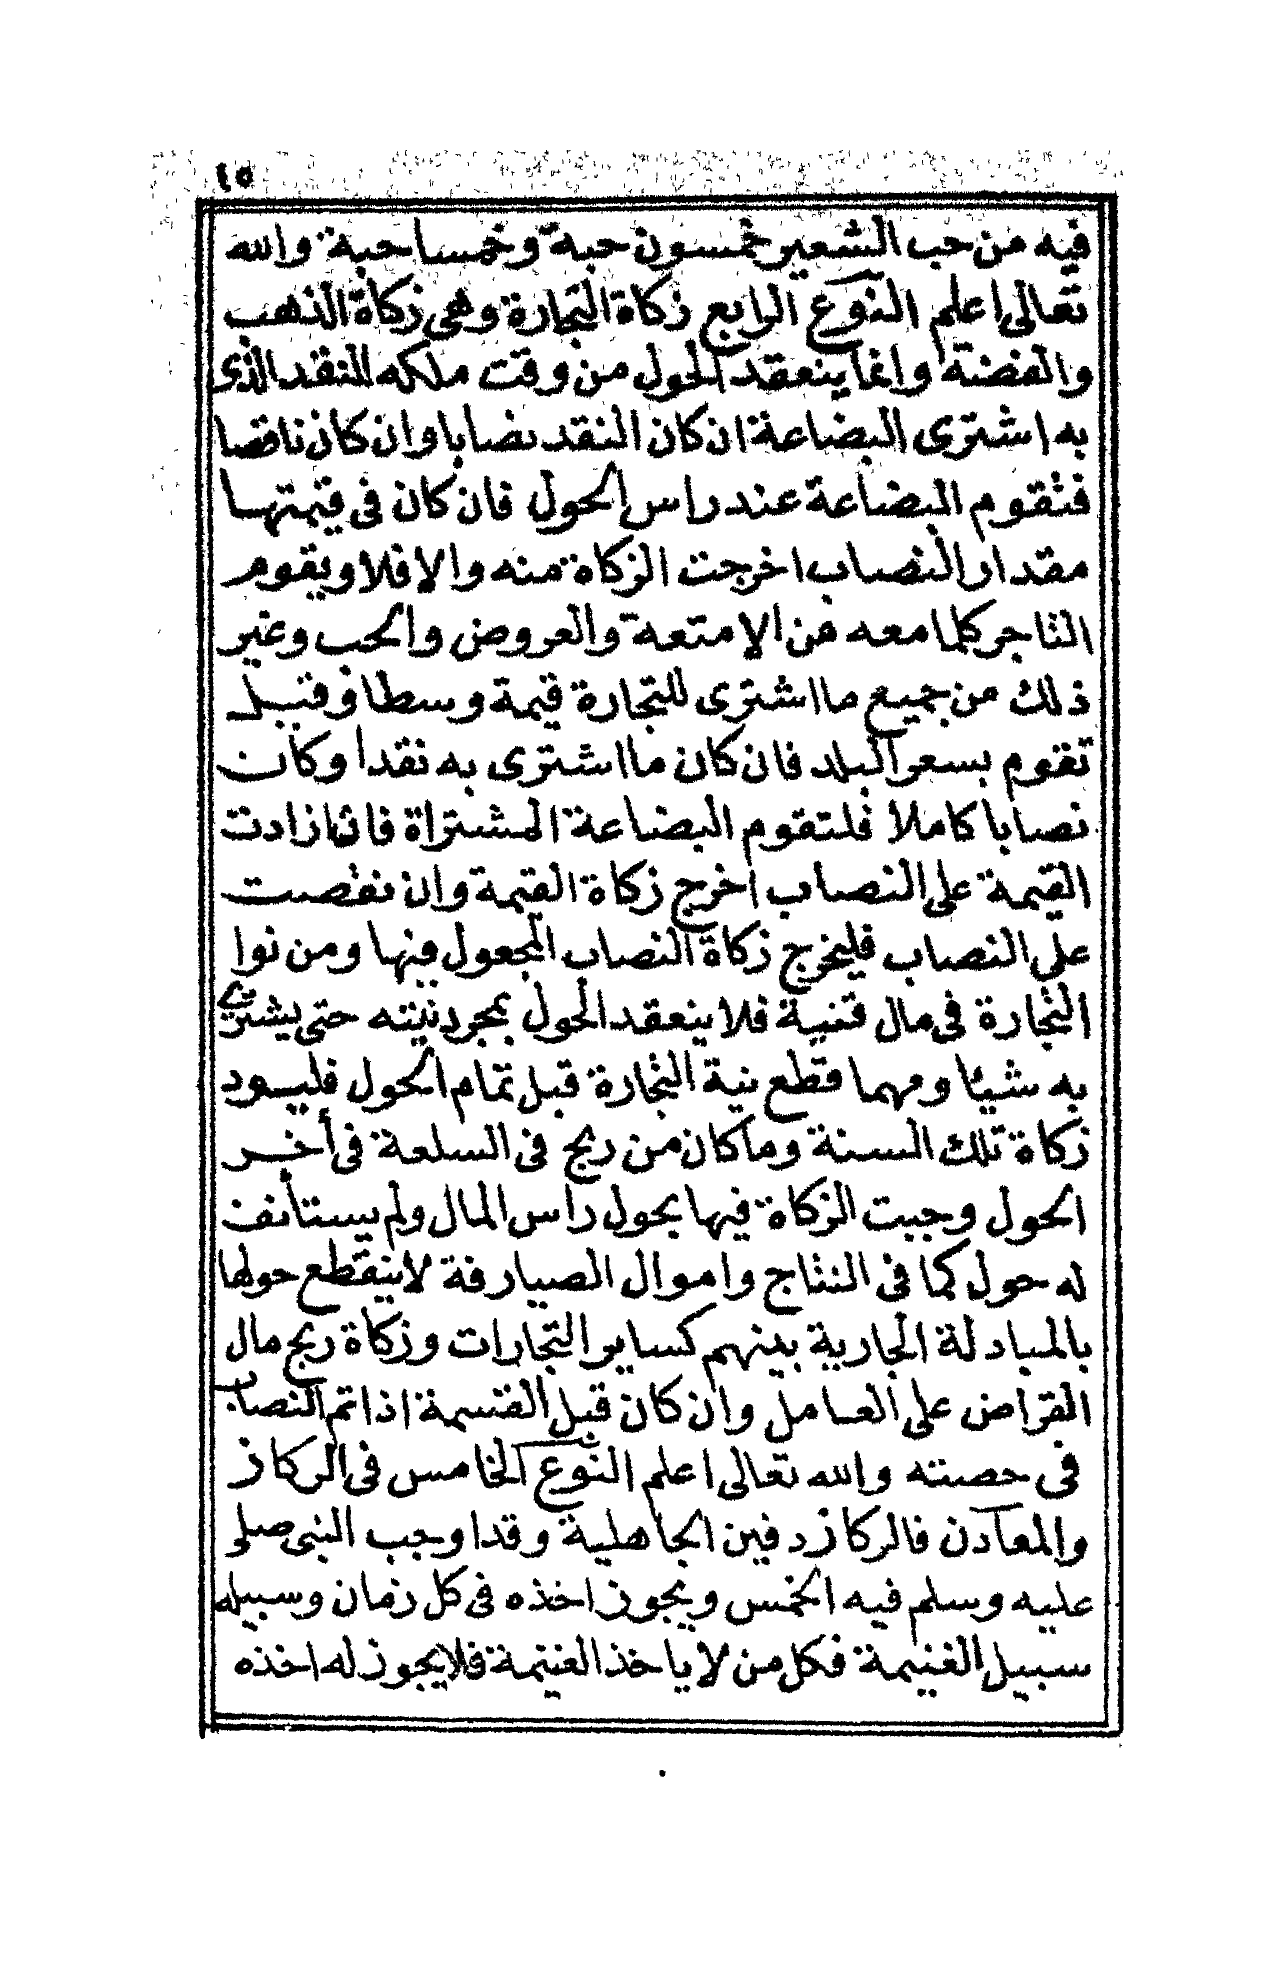 ٤٥
فيه من حب الشعير خمسون حبة وخمسا حبة والله
تعالى اعلم النوع الرابع زكاة التجارة وهى زكاة الذهب
والفضة وانما ينعقد الحول من وقت ملكه للنقد الذى
به اشترى البضاعة ان كان النقد نصابا وان كان ناقصا
فتقوم البضاعة عند راس الحول فان كان فى قيمتها
مقدار النصاب اخرجت الزكاة منه والا فلا ويقوم
التاجر كلما معه من الامتعة والعروض والحب وغير
ذلك من جميع ما اشترى للتجارة قيمة وسطا وقيل
تقوم بسعر البلد فان كان ما اشترى به نقدا وكان
نصابا كاملا فلتقوم البضاعة المشتراة فان زادت
القيمة على النصاب اخرج زكاة القيمة وان نقصت
على النصاب فليخرج زكاة النصاب المجعول فيها ومن نوا
التجارة فى مال قنية فلا ينعقد الحول بمجرد نيته حتى يشترى
به شيئا ومهما قطع نية التجارة قبل تمام الحول فليود
زكاة تلك السنة وما كان من ربح فى السلعة فى أخر
الحول وجبت الزكاة فيها بحول راس المال ولم يستانف
له حول كما فى النتاج واموال الصيارفة لا ينقطع حولها
بالمبادلة الجارية بينهم كساير التجارات وزكاة ربح مال
القراض على العامل وان كان قبل القسمة اذا تم النصاب
فى حصته والله تعالى اعلم النوع الخامس فى الركاز
والمعادن فالركاز دفين الجاهلية وقد اوجب النبى صلى
عليه وسلم فيه الخمس ويجوز اخذه فى كل زمان وسبيله
سبيل الغنيمة فكل من لا ياخذ الغنيمة فلا يجوز له اخذه